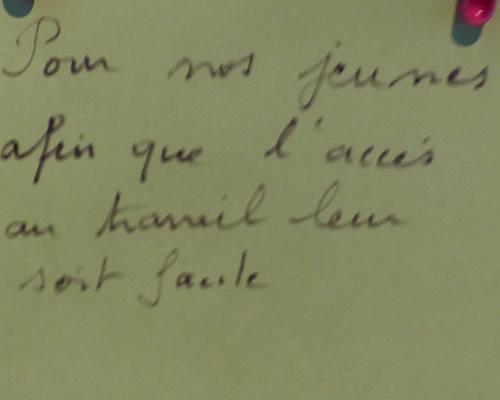 Pour nos jeunes
afin que l'accés
au travail leur
soit facile